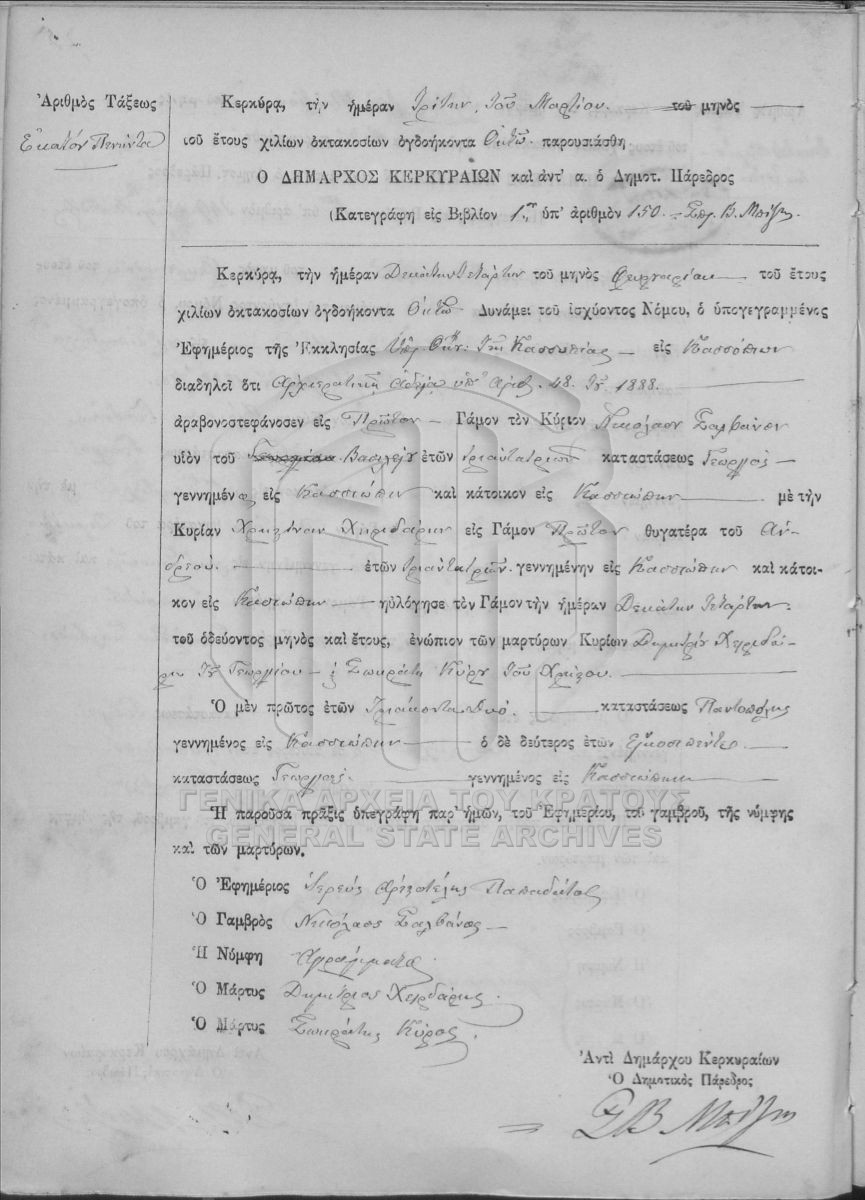 Ἀριθμὸς Τάξεως
Ἑκατόν Πενήντα
Κερκύρᾳ, τὴν ἡμέραν Τρίτην τοῦ Μαρτίου τοῦ μηνὸς
τοῦ ἔτους χιλίων ὀκτακοσίων ὀγδοήκοντα Ὀκτώ παρουσιάσθη
Ο ΔΗΜΑΡΧΟΣ ΚΕΡΚΥΡΑΙΩΝ καὶ ἀντ' α. ὁ Δημοτ. Πάρεδρος
(Κατεγράφη εἰς Βιβλίον 1ον ὑπ' ἀριθμὸν 150 Σπ. Β.
Κερκύρᾳ, τὴν ἡμέραν Δεκάτην Τετάρτην τοῦ μηνὸς Φεβρουαρίου τοῦ ἔτους
χιλίων ὀκτακοσίων ὀγδοήκοντα Ὀκτώ Δυνάμει τοῦ ἰσχύοντος Νόμου, ὁ ὑπογεγραμμένος
Ἐφημέριος τῆς Ἐκκλησίας Ὑπ. Θεοτ: τῆς Κασσωπίας εἰς Κασσώπην
διαδηλοῖ ὅτι Ἀρχιερατικῇ ἀδείᾳ ὑπ' ἀριθ. 48. τοῦ 1888.
ἀραβονοστεφάνοσεν εἰς Πρῶτον Γάμον τὸν Κύριον Νικόλαον Σαλβάνον
υἱὸν τοῦ Βασιλείου ἐτῶν τριάντατριῶν καταστάσεως Γεωργὸς
γεννημένος εἰς Κασσιώπην καὶ κάτοικον εἰς Κασσιώπην μὲ τὴν
Κυρίαν Χειρδάρην εἰς Γάμον Πρῶτον θυγατέρα τοῦ Ἀν-
δρέου. ἐτῶν τριάντατριῶν γεννημένην εἰς Κασσιώπην καὶ κάτοι-
κον εἰς Κασσιώπην ηὐλόγησε τὸν Γάμον τὴν ἡμέραν Δεκάτην Τετάρτην
τοῦ ὁδεύοντος μηνὸς καὶ ἔτους, ἐνώπιον τῶν μαρτύρων Κυρίων Δημητρίου Χειρδά-
ρη τοῦ Γεωργίου Σωκράτη Κύρου τοῦ Χρήστου.
Ὁ μὲν πρῶτος ἐτῶν Τριάκοντα δύο. καταστάσεως Παντοπώλης
γεννημένος εἰς Κασσιώπην ὁ δὲ δεύτερος ἐτῶν Εἰκοσιπέντε.
καταστάσεως Γεωργός. γεννημένος εἰς Κασσιώπην
ΓΕΝΙΚΑ ΑΡΧΕΙΑ ΤΟΥ ΚΡΑΤΟΥΣ
Ἡ παροῦσα πρᾶξις ὑπεγράφη παρ' ἡμῶν, τοῦ Ἐφημερίου, τοῦ γαμβροῦ, τῆς νύμφης
GENERAL STATE ARCHIVES
καὶ τῶν μαρτύρων.
Ὁ Ἐφημέριος Ἱερεὺς Ἀριστοτέλης Παπαδάτος
Ὁ Γαμβρὸς Νικόλαος Σαλβάνος
Ἡ Νύμφη Ἀγράμματος.
Ὁ Μάρτυς Δημήτριος Χειρδάρης.
Ὁ Μάρτυς Σωκράτης Κύρος.
Ἀντὶ Δημάρχου Κερκυραίων
Ὁ Δημοτικὸς Πάρεδρος
Σ Β